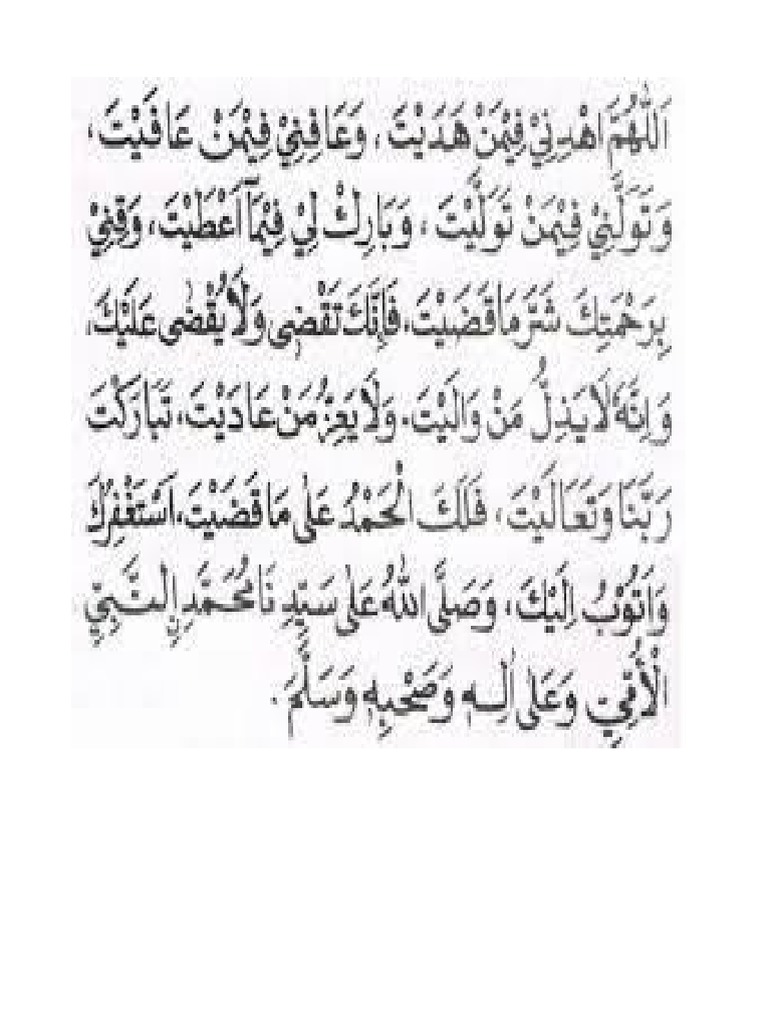 اَللّٰهُمَّ اهْدِنِيْ فِيْمَنْ هَدَيْتَ، وَعَافِنِيْ فِيْمَنْ عَافَيْتَ،
وَتَوَلَّنِيْ فِيْمَنْ تَوَلَّيْتَ، وَبَارِكْ لِيْ فِيْمَآ اَعْطَيْتَ، وَقِنِيْ
بِرَحْمَتِكَ شَرَّ مَا قَضَيْتَ، فَاِنَّكَ تَقْضِى وَلَا يُقْضٰى عَلَيْكَ،
وَاِنَّهٗ لَا يَذِلُّ مَنْ وَالَيْتَ. وَلَا يَعِزُّ مَنْ عَادَيْتَ، تَبَارَكْتَ
رَبَّنَا وَتَعَالَيْتَ، فَلَكَ الْحَمْدُ عَلٰى مَا قَضَيْتَ، اَسْتَغْفِرُكَ
وَاَتُوْبُ اِلَيْكَ، وَصَلَّى اللّٰهُ عَلٰى سَيِّدِنَا مُحَمَّدٍ اِلنَّبِيِّ
الْأُمِّيِّ وَعَلٰى اٰلِهٖ وَصَحْبِهٖ وَسَلَّمَ.